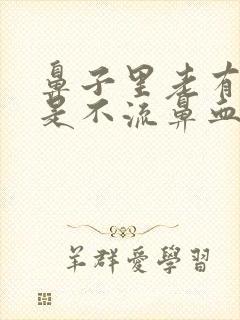 鼻子里老有
是不流鼻血
羊群愛學習